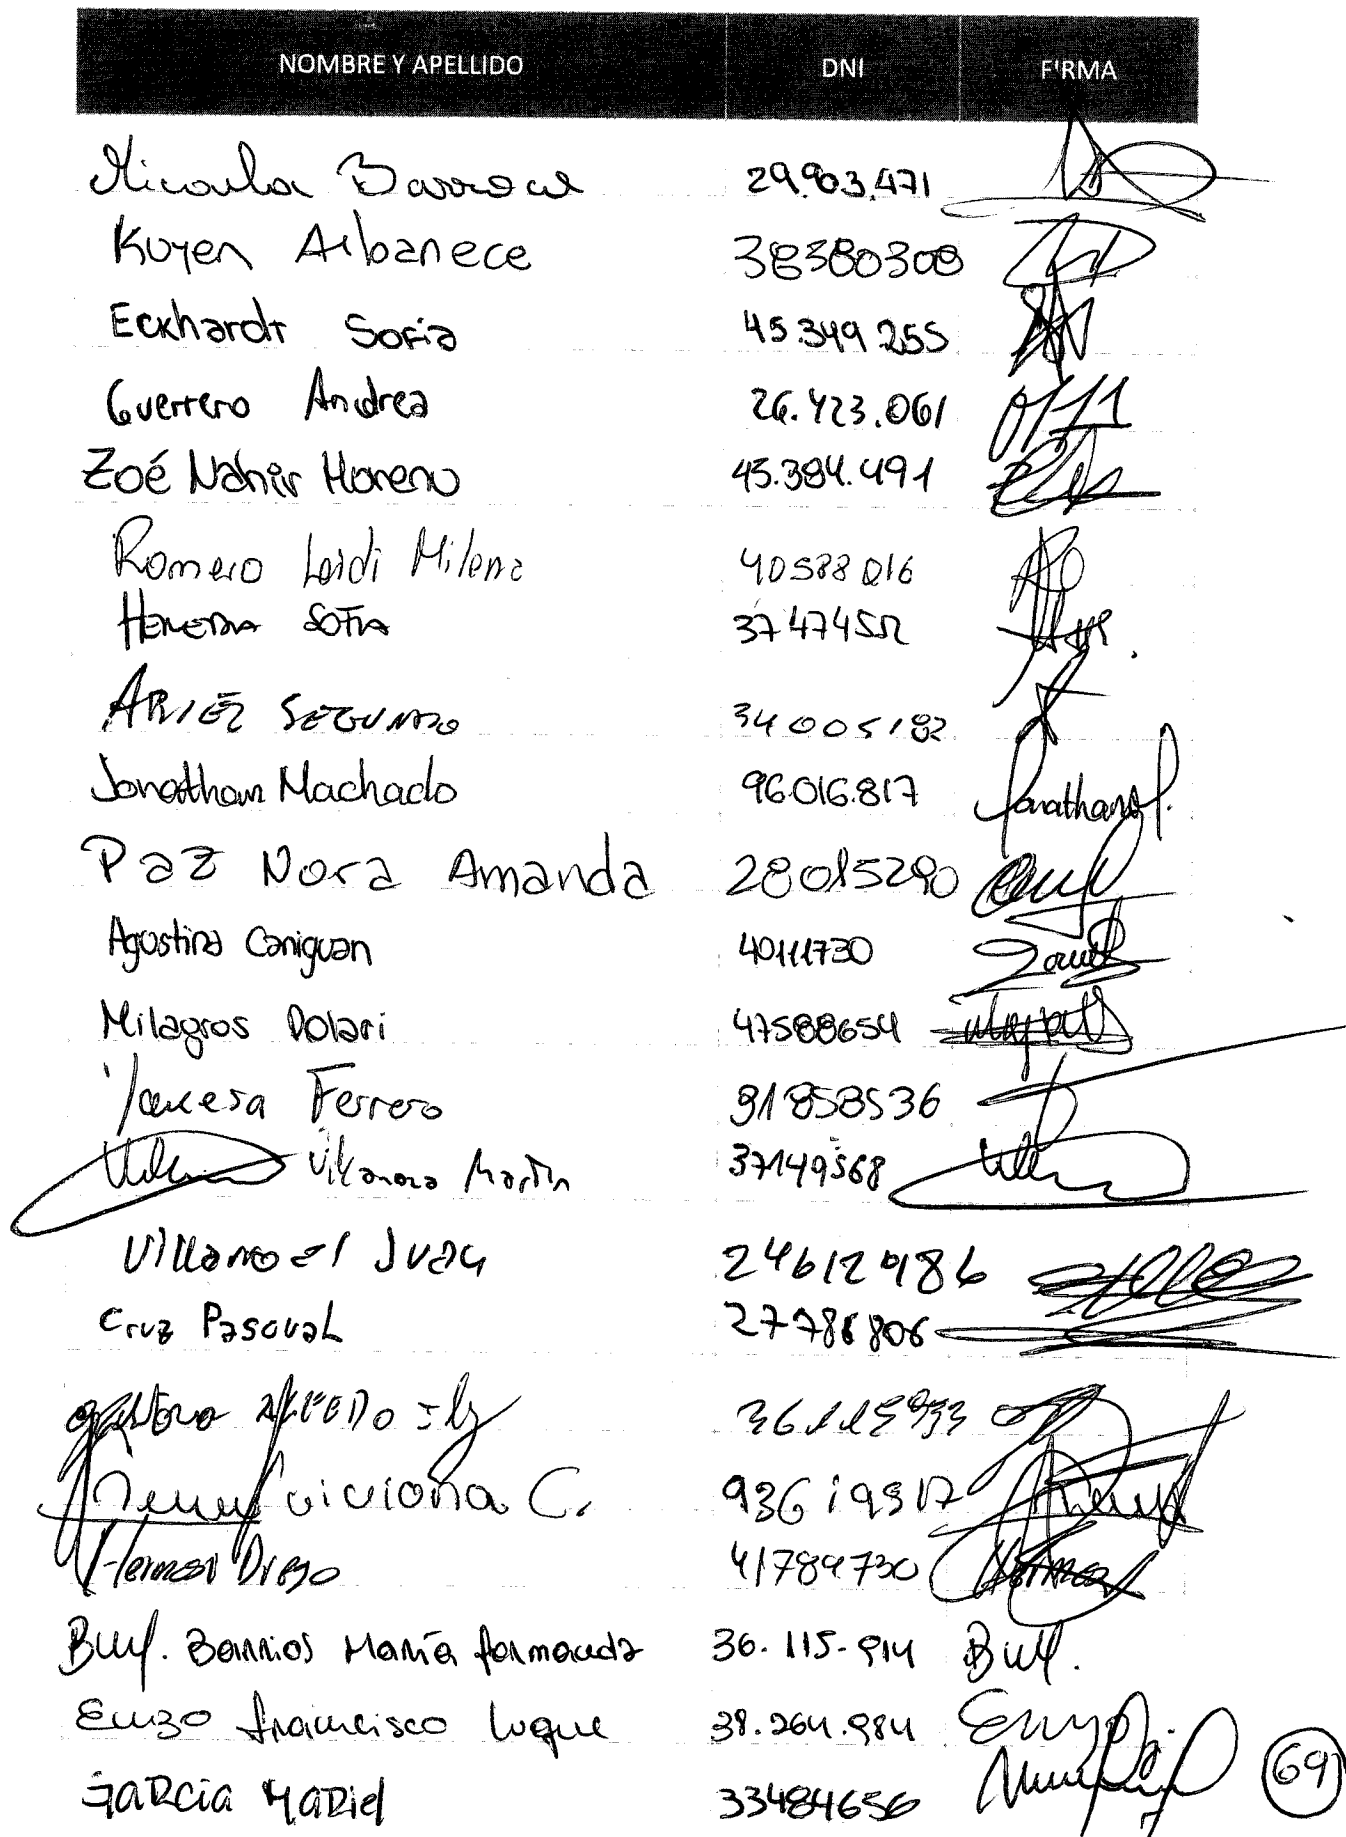 NOMBRE Y APELLIDO DNI FIRMA
29.903.471
Kuyen Albanece 38380308
Eckhardt Sofia 45.349.255
Guerrero Andrea 26.423.061
Zoé Nahir Moreno 45.384.491
Romero Leidi Milena 40588016
HEREDIA SOFIA 37474552
ARIEL SEGUNDO 34005182
Jonathan Machado 96.016.817
Paz Nora Amanda 28015290
Agostina Caniguan 40111730
Milagros Dolari 47588654
Vanesa Ferrero 91858536
Villanova Martin 37149568
Villarroel Juan 24612986
Cruz Pascual 27786806
36115933
Viviana C. 93619517
Herman Diego 41789730
Barrios María Fernanda 36.115.914
Enzo Francisco Luque 38.264.984
GARCIA MARIEL 33484656
69